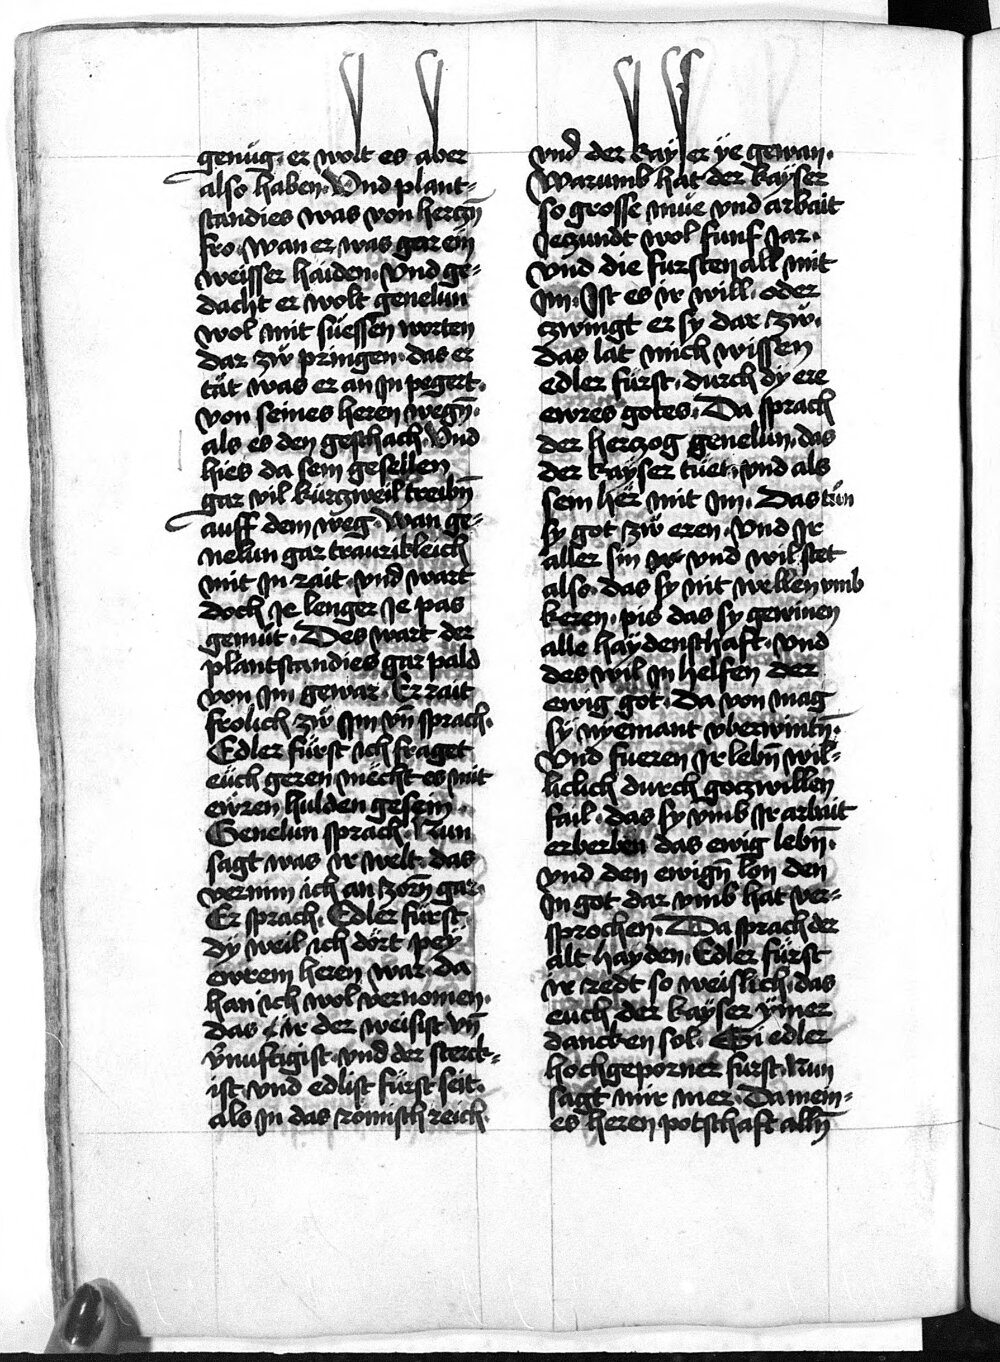 genüg. er wolt es aber
also haben. Vnd plant-
standies was von herczn̄
fro. wan er was gar ein
weisser haiden. Vnd ge-
dacht er wolt genelun
wol mit süessen worten
dar zẅ pringen. das er
tät was er an Jn pegert.
von seines heren wegn̄.
als es den geschach. Vnd
hies da sein gesellen
gar vil kürczweil treibn̄
auff dem weg. Wan ge-
nelun gar traurikleich
mit Jn rait. vnd wart
doch Je lenger Je pas
gemüt. Des wart der
plantstandies gar pald
von Jm gewar. Er rait
frolich zẅ Jm vn̄ sprach.
Edler fürst ich fraget
eüch geren mëcht es mit
ewren hulden gesein.
Genelun sprach. Nun
sagt was ir welt. das
vernim ich an zorn̄ gar.
Er sprach. Edler fürst
dÿ weil ich dört peÿ
ewrem heren war. da
han ich wol vernomen.
das Ir der weisist vn̄
vnuftigist. vnd der sterck-
ist vnd edlist fürst seit.
als Jn das römisch reich
vnd der kayser ÿe gewan.
Warumb hat der kaÿser
so grosse müe vnd arbait
Jeczundt wol funf Jar.
Vnd die fursten all mit
Jm. Jst es ir will. oder
czwingt er sy dar zẅ.
das lat mich wissen
edler fürst. durch dÿ ere
ewres gotes. Da sprach
der herczog genelun. das
der kaÿser tüet. vnd als
sein hër mit Jm. Das tün
sy got zẅ eren. Vnd Jr
aller sin vnd wil stet
also. das sy nit wellen vmb
keren. pis das sy gewinen
alle haÿdenschaft. vnd
des wil Jn helfen der
ewig got. Da von mag
sÿ nÿemant vberwintn̄.
Vnd fueren Jr lebn̄ wil-
liclich durch goczwillen
fail. das sy vmb Jr arbait
erberben das ewig lebn̄.
vnd den ewign̄ lon den
Jn got dar vmb hat ver-
sprochen. Da sprach der
alt haÿden. Edler fürst
ir redt so weislich. das
euch der kaÿser ÿmer
dancken sol. Ei edler
hochgeporner furst. Nun
sagt mir mer. Da mein-
es heren potschaft alln̄